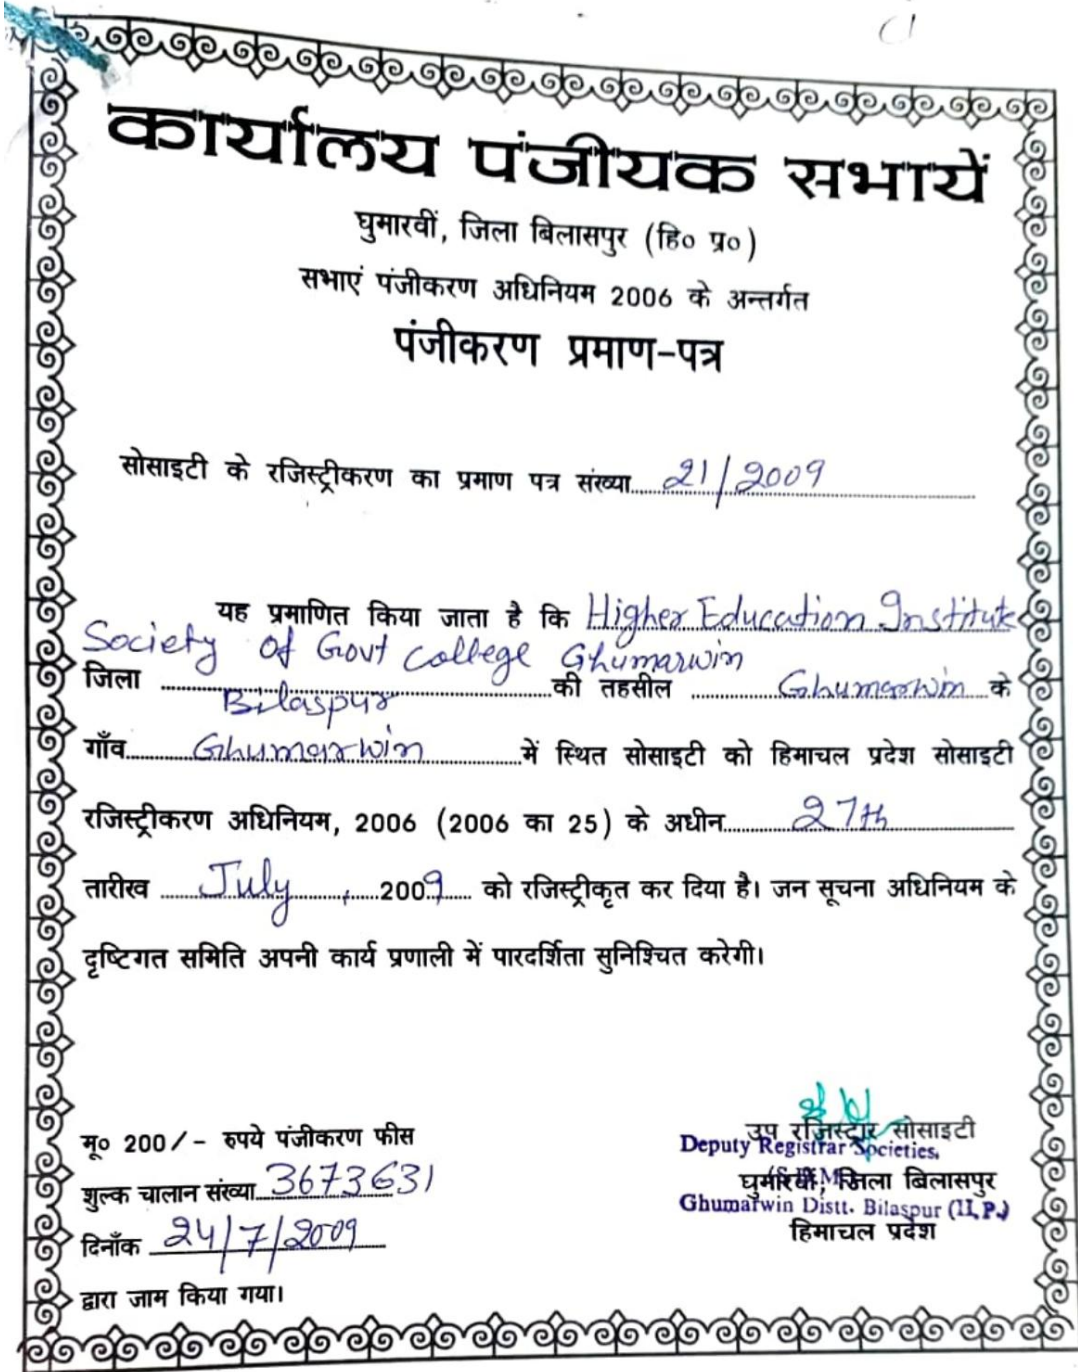 कार्यालय पंजीयक सभायें
घुमारवीं, जिला बिलासपुर (हि० प्र०)
सभाएं पंजीकरण अधिनियम 2006 के अन्तर्गत
पंजीकरण प्रमाण-पत्र
सोसाइटी के रजिस्ट्रीकरण का प्रमाण पत्र संख्या 21/2009
यह प्रमाणित किया जाता है कि Higher Education Institute
Society Of Govt College Ghumarwin
जिला Bilaspur की तहसील Ghumarwin के
गाँव Ghumarwin में स्थित सोसाइटी को हिमाचल प्रदेश सोसाइटी
रजिस्ट्रीकरण अधिनियम, 2006 (2006 का 25) के अधीन 27th
तारीख July, 2009 को रजिस्ट्रीकृत कर दिया है। जन सूचना अधिनियम के
दृष्टिगत समिति अपनी कार्य प्रणाली में पारदर्शिता सुनिश्चित करेगी।
मू० 200/- रुपये पंजीकरण फीस
शुल्क चालान संख्या 3673631
दिनाँक 24/7/2009
द्वारा जाम किया गया।
उप रजिस्ट्रार सोसाइटी
Deputy Registrar Societies,
घुमारवीं, जिला बिलासपुर
Ghumarwin Distt. Bilaspur (H.P.)
हिमाचल प्रदेश